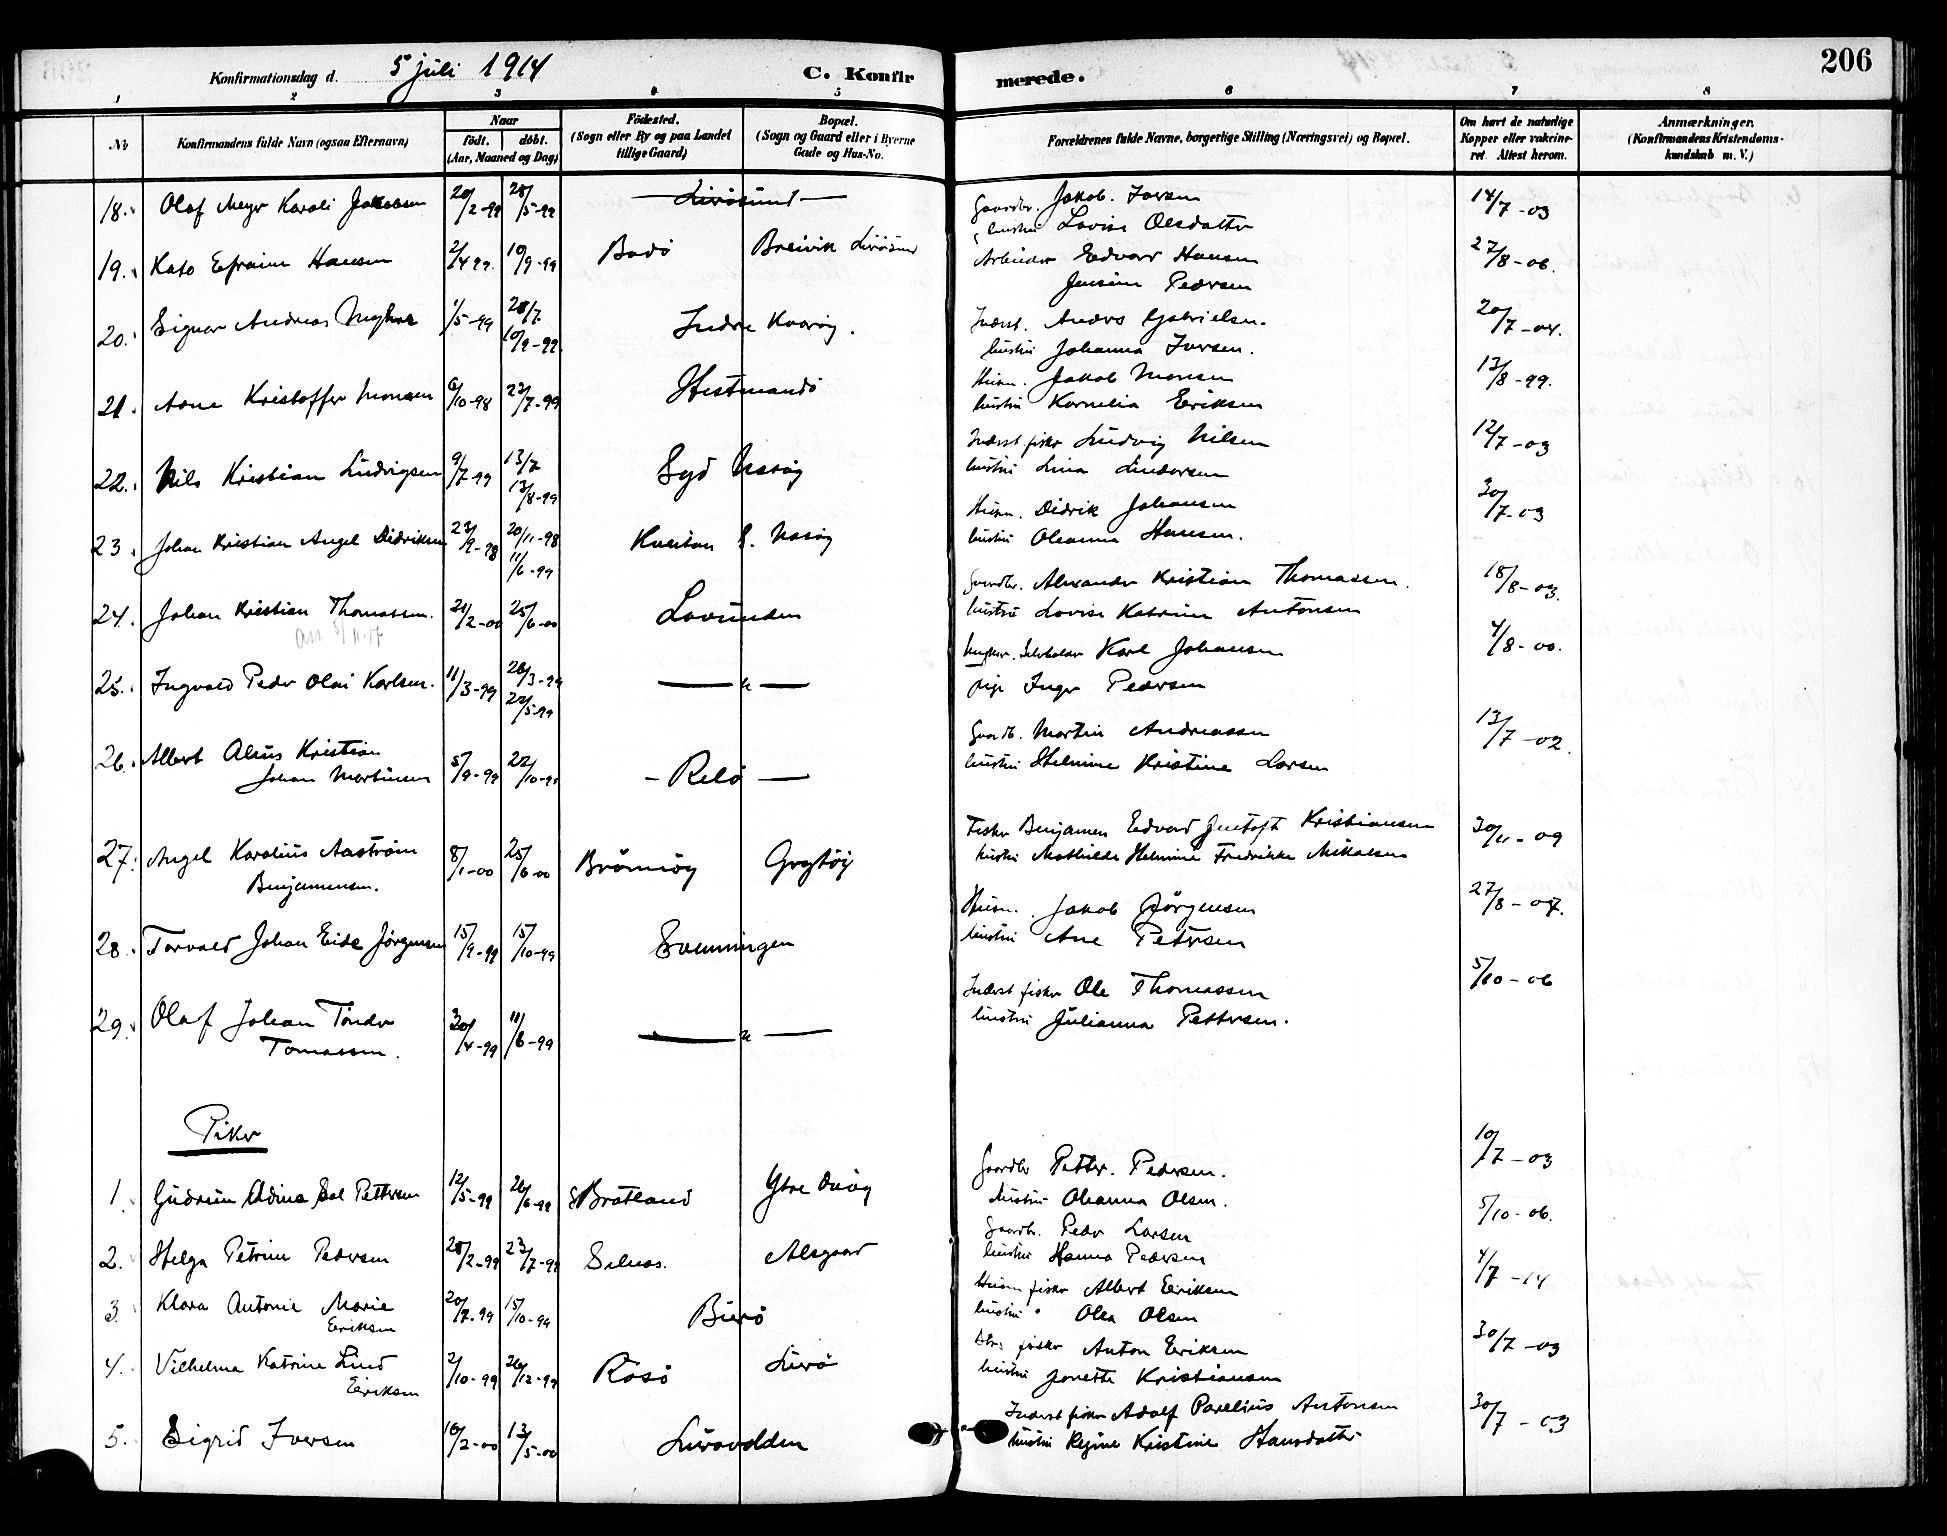 206
Konfirmationsdag d. 5 juli 1914 C. Konfirmerede.
1 2 3 4 5 6 7 8
№
Konfirmandens fulde Navn (ogsaa Efternavn)
Naar
født. døbt.
(Aar, Maaned og Dag)
Fødested.
(Sogn eller By og paa Landet
tillige Gaard)
Bopæl.
(Sogn og Gaard eller i Byerne
Gade og Hus-No.
Forældrenes fulde Navne, borgerlige Stilling (Næringsvei) og Bopæl.
Om havt de naturlige
Kopper eller vakcine-
ret Attest herom.
Anmærkninger.
(Konfirmandens Kristendoms-
kundskab m. V.)
18. Olaf Meyer Karoli Jakobsen 20/2-99 28/5-99 Lurøsund Gaardbr. Jakob Iversen 14/7-03
hustru Lovise Olsdatter
19. Kato Efraim Hansen 2/4 99. 10/9-99 Bodø Breivik Lurøsund Arbeider Edvard Hansen 27/8-06.
Jensine Pedersen
20. Eignar Andreas 1/5-99 28/7 10/9-99. Indre Kvarøy. Inderst. Anders Gabrielsen. 20/7-04.
hustru Johanna Iversen.
21. Arne Kristoffer Monsen 6/10-98 23/7-99 Hestmandø Husm. Jakob Monsen 13/8-99.
hustru Kornelia Eriksen
22. Nils Kristian Ludvigsen 9/7-99 13/7 13/8-99 Syd Nesøy Inderst fisker Ludvig Nilsen 12/7-03
hustru Lina Andersen
23. Johan Kristian Angel Didriksen 23/9-98 20/11-98 11/6-99 Kveitan S. Nesøy Husm. Didrik Johansen 30/7-03
hustru Oleanna Hansen.
24. Johan Kristian Thomassen. 21/2-00 25/6-00 Lovunden Gaardbr. Alexander Kristian Thomassen. 18/8-03.
hustru Lovise Katrine Antonsen
25. Ingvald Peder Olai Karlsen. 11/3-99 26/3-99 22/5-99 — " — Ungkar. Karl Johansen 4/8-00.
pige Inger Pedersen
26. Albert Alsius Kristian
Johan Martinsen 5/9-99 22/10-99 — Relø — Gaardb. Martin Andreassen 13/7-02.
hustru Helmine Kristine Larsen
27. Angel Karolius Aastrøm
Benjaminsen. 8/1-00 25/6-00 Brønnøy Grøtøy Fisker Benjamen Edvard Gustaft Kristiansen 30/11-09
hustru Mathilde Helmine Fredrikke Mikalsen
28. Torvald Johan Eide Jørgensen 15/9-99 15/10-99 Svenningen Husm. Jakob Jørgensen 27/8-07.
hustru Ane Petersen
29. Olaf Johan Tønder
Tomassen. 30/4-99 11/6-99 — " — Inderst fisker Ole Thomassen 5/10-06
hustru Julianna Pettersen.
Piker
1. Gudrun Adina Pettersen 12/5-99 26/6-99 Bratland Ytre Gaardbr Petter Pedersen. 10/7-03
hustru Oleanna Olsen.
2. Helga Petrine Pedersen 28/2-99 23/7-99 Selnes. Alsgaard Gaardbr. Peder Larsen 5/10-06.
hustru Hanna Pedersen
3. Klara Antonie Marie
Eriksen 20/7-99 15/10-99 Burø Husm fisker Albert Eriksen 4/7-14
hustru Olea Olsen
4. Vilhelma Katrine Lind
Eriksen 2/10-99 26/12-99 Rosø Lurø fisker Anton Eriksen 30/7-03
hustru Jonette Kristiansen
5. Sigrid Iversen 10/2-00 13/5-00 Lurøvolden Inderst fisker Adolf Parelius Antonsen 30/7-03
hustru Regine Kristine Hansdatter